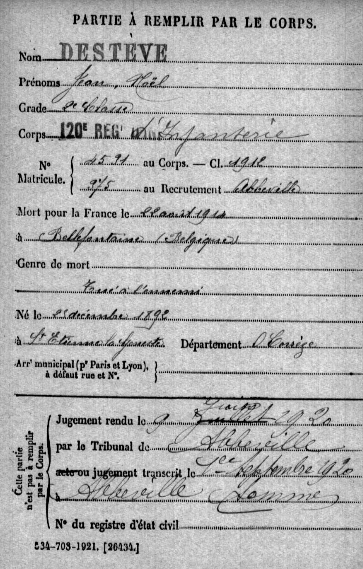 PARTIE À REMPLIR PAR LE CORPS.
Nom DESTÈVE
Prénoms Jean, Noël
Grade 2e Classe
Corps 120E REGt d'Infanterie
No Matricule. 4591 au Corps. — Cl. 1912
975 au Recrutement Abbeville
Mort pour la France le 22 août 1914
à Bellefontaine (Belgique)
Genre de mort
Tué à l'ennemi
Né le 25 décembre 1892
à St Etienne la Département Corrèze
Arrt municipal (pr Paris et Lyon), à défaut rue et No.
Cette partie n'est pas à remplir par le Corps.
Jugement rendu le 9 1920
par le Tribunal de Abbeville
acte ou jugement transcrit le 1er septembre 1920
à Abbeville Somme
No du registre d'état civil
534-708-1921. [26434.]